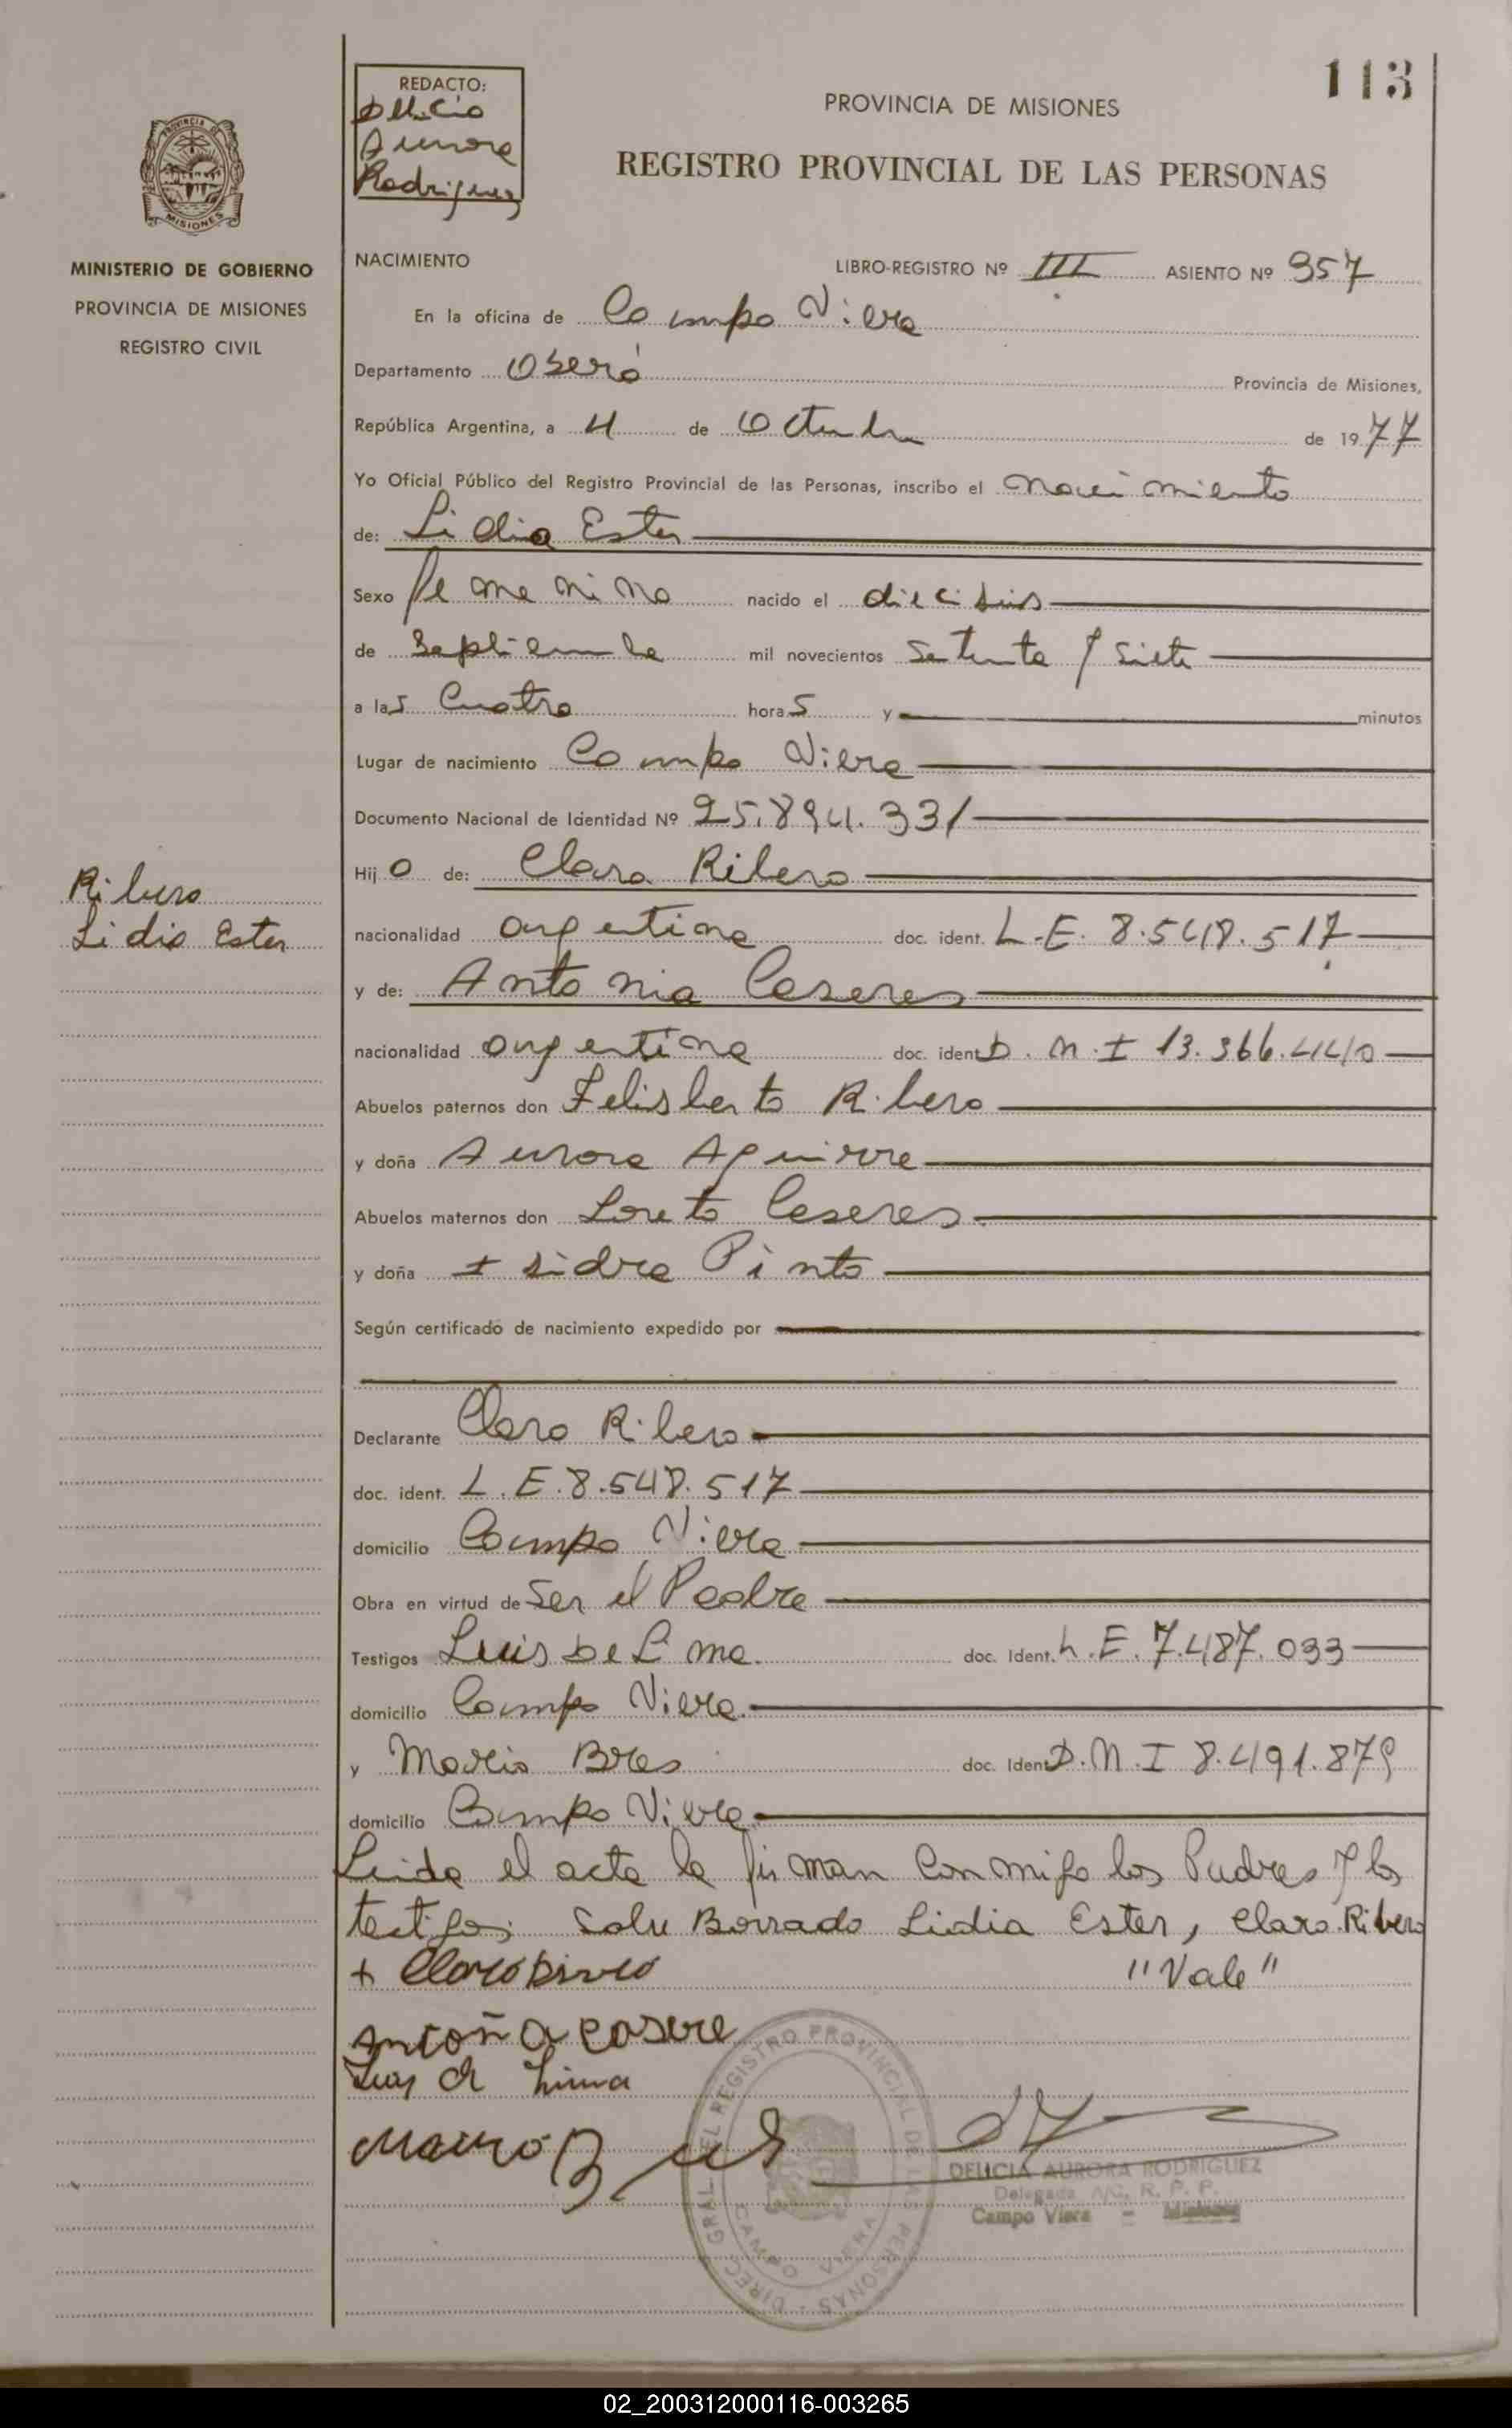 113
REDACTO:
Delicia
Aurora
Rodriguez
PROVINCIA DE MISIONES
REGISTRO PROVINCIAL DE LAS PERSONAS
PROVINCIA DE
MISIONES
MINISTERIO DE GOBIERNO
PROVINCIA DE MISIONES
REGISTRO CIVIL
NACIMIENTO
LIBRO-REGISTRO Nº III ASIENTO Nº 357
En la oficina de Campo Viera
Departamento Oberá Provincia de Misiones,
República Argentina, a 4 de Octubre de 1977
Yo Oficial Público del Registro Provincial de las Personas, inscribo el nacimiento
de: Lidia Ester
Sexo femenino nacido el dieciseis
de Septiembre mil novecientos setenta y siete
a las cuatro horas y minutos
Lugar de nacimiento Campo Viera
Documento Nacional de Identidad Nº 25.894.331
Hijo de: Claro Ribero
Ribero
Lidia Ester
nacionalidad argentina doc. ident. L.E. 8.548.517
y de: Antonia Caseres
nacionalidad argentina doc. ident D.N.I 13.366.440
Abuelos paternos don Felisberto Ribero
y doña Aurora Aguirre
Abuelos maternos don Loreto Caseres
y doña Isidra Pinto
Según certificado de nacimiento expedido por
Declarante Claro Ribero
doc. ident. L.E. 8.548.517
domicilio Campo Viera
Obra en virtud de Ser el Padre
Testigos Luis De Lima doc. Ident. L.E. 7.487.033
domicilio Campo Viera
y Mario Bres doc. Ident D.N.I 8.491.879
domicilio Campo Viera
Leida el acta la firman conmigo los Padres y los
testigos: Sobre Borrado Lidia Ester, Claro Ribero
+ Claro "Vale"
Antoña casere
Luis de Lima
Mario
DIREC. GRAL. DEL REGISTRO PROVINCIAL DE LAS PERSONAS
CAMPO VIERA
DELICIA AURORA RODRIGUEZ
Delegada A/C. R. P. P.
Campo Viera - Misiones
02_200312000116-003265